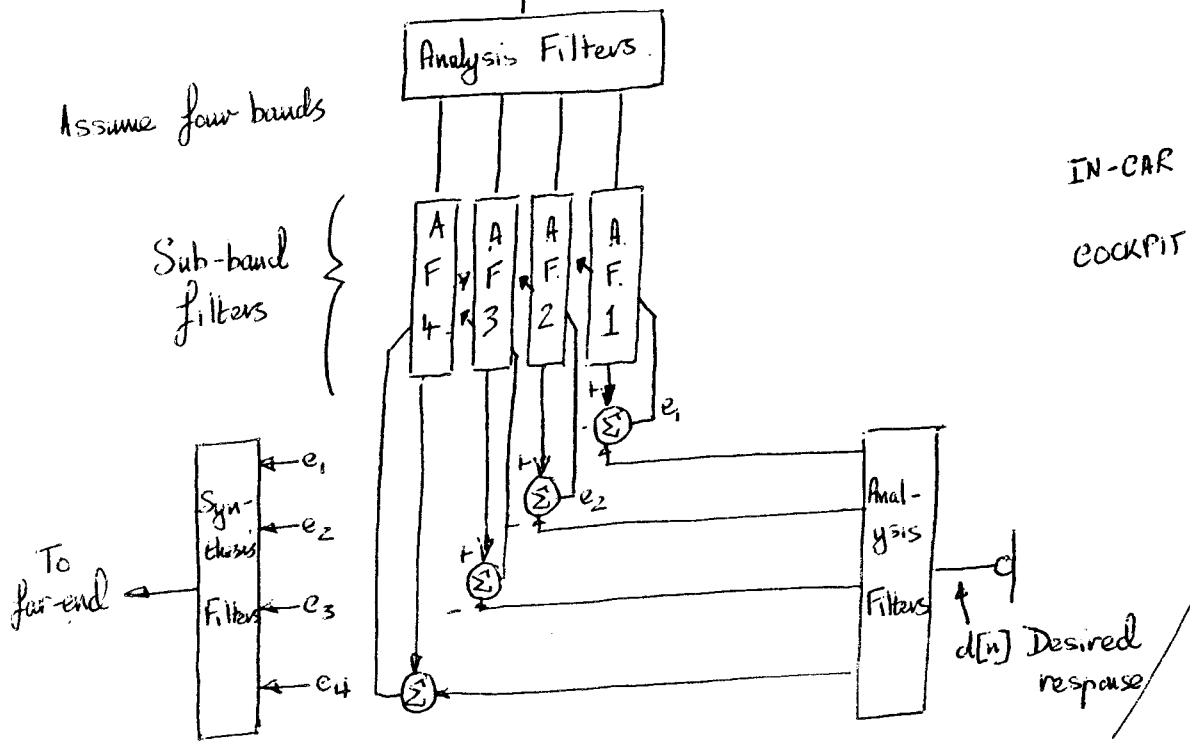 Analysis Filters.
Assume four bands
IN-CAR
COCKPIT
Sub-band
filters
A F 4
A F 3
A F. 2
A. F. 1
+
-
e1
+
-
e2
+
-
Σ
Σ
Σ
Σ
Syn-
thesis
Filters
e1
e2
e3
e4
To
far-end
Anal-
ysis
Filters
d[n] Desired
response